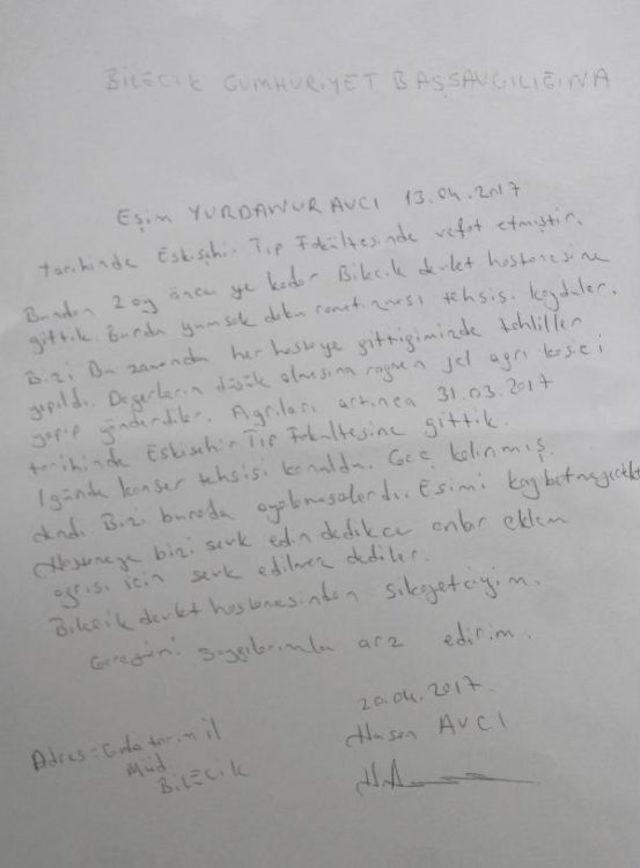 BİLECİK CUMHURİYET BAŞSAVCILIĞINA
Eşim YURDANUR AVCI 13.04.2017
tarihinde Eskişehir Tıp Fakültesinde vefat etmiştir.
Bundan 2 ay önce ye kadar Bilecik devlet hastanesine
gittik. Burda yumşak doku romatizması tehsisi koydular.
Bizi Bu zamanda her hastaya gittiğimizde tahliller
yapıldı. Değerlerin düşük olmasına rağmen jel ağrı kesici
yapıp gönderdiler. Ağrıları artınca 31.03.2017
tarihinde Eskisehir Tıp Fakültesine gittik.
1 günde kanser tehsisi konuldu. Geç kalınmış
dendi. Bizi burada oyalamasalerdı. Eşimi kaybetmeyecektik
Hastaneye bizi sevk edin dedikce onlar eklem
ağrısı için sevk edilmez dediler.
Bilecik devlet hastanesinden şikayetciyim.
Gereğini saygılarımla arz ederim.
20.04.2017.
Hasan AVCI
Adres: Gıda tarım il
Müd
BİLECİK